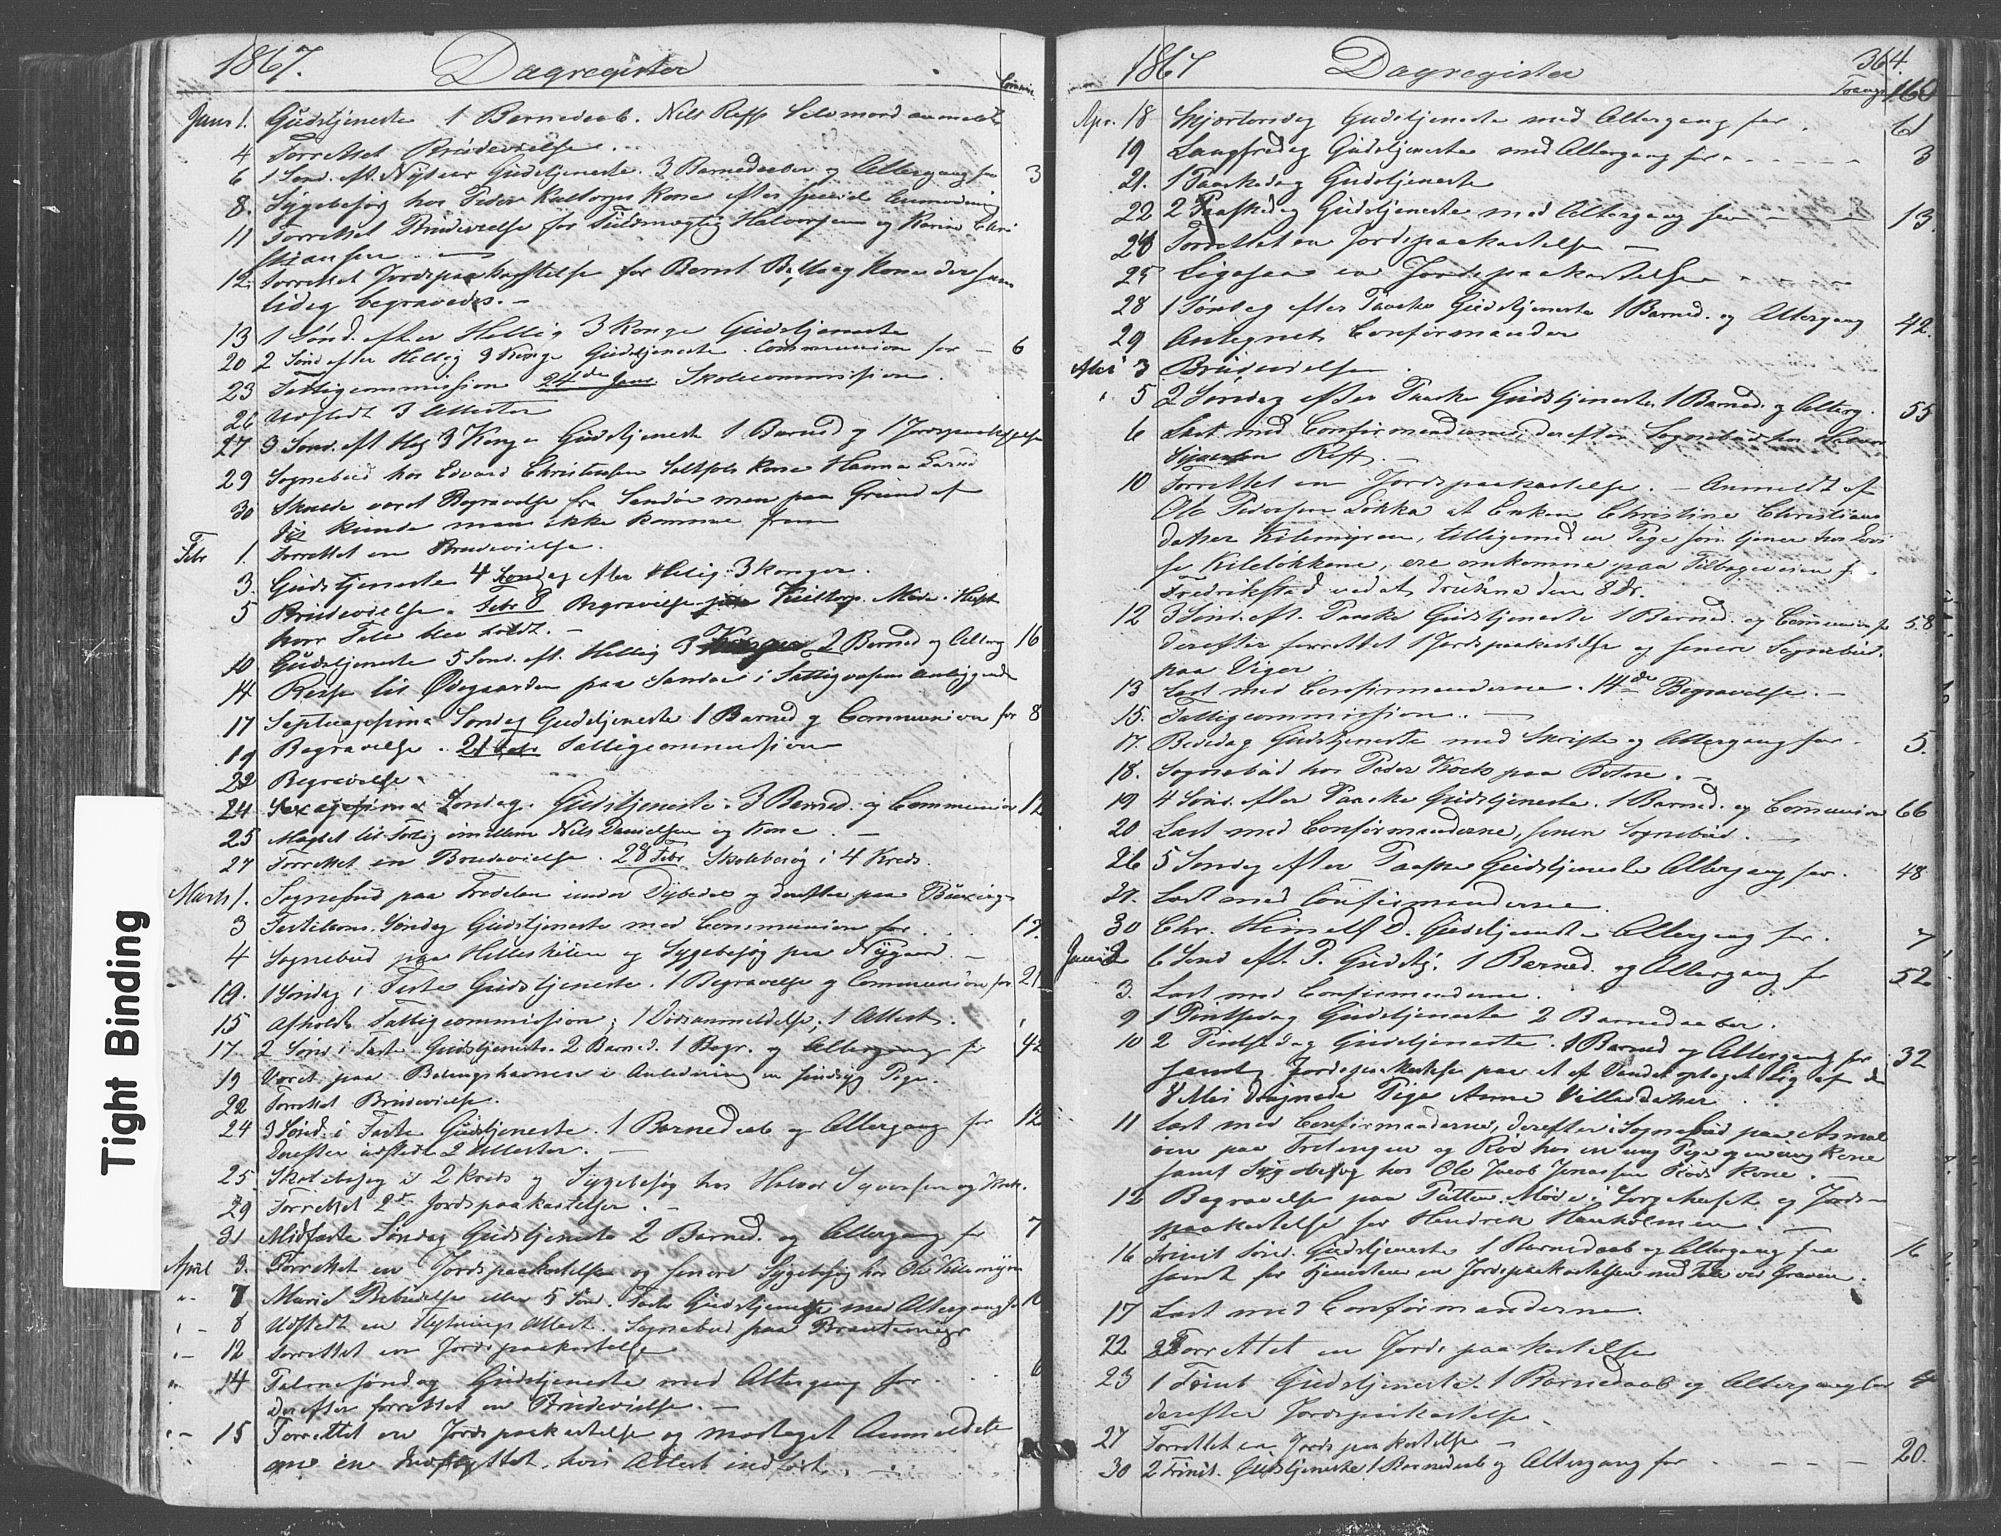 1867. Dagregister
Janr 1. Gudstjeneste 1 Barnedaab. Nils Selvmord anmeldt
4 Forrettet Brudevielse
6 1 Sønd. eft. Nytaar Gudstjeneste. 3 Barnedaaber og Altergang for 3
8. Sygebesøg hos Peder Kone efter Anmodning
11 Forrettet Brudevielse for Halvorsen og Karine Chri
stiansen
12. Forrettet Jordspaakastelse for Bernt Kone der sam
tidig begravedes. -
13 1 Sønd. efter Hellig 3 Konge Gudstjeneste
20 2 Sønd efter Hellig 3 Konge Gudstjeneste. Communion for - 6
23 Fattigcommission 24de Janr. Skolecommission.
26 Udstedt 3 Attester
27 3 Sønd. eft Hlg 3 Konge Gudstjeneste 1 Barned og 1 Jordspaakastelse
29 Sognebud hos Edvard Christensen Kone Hanna
30 Skulde været Begravelse fra Sandøe men paa Grund af
Iis kunde man ikke komme frem
Febr 1. Forrettet en Brudevielse.
3. Gudstjeneste 4 Søndag efter Hellig 3 Konger.
5 Brudevielse. Febr 8 Begravelse
hvor Tale blev holdt. -
10 Gudstjeneste 5 Sønd. eft. Hellig 3 Konger 2 Barned og Alterg 16
14 Reise til Ødegaarden paa Sandøe i Fattigvæsens Anliggende
17 Septuagesima Søndag Gudstjeneste 1 Barned og Communion for 8
19 Begravelse. 21 Febr Fattigcommission
22 Begravelse.
24 Sexagesima Søndag. Gudstjeneste. 3 Barned. og Communion 12
25 Mæglet til Forlig imellem Nils Danielsen og Kone. -
27 Forrettet en Brudevielse. 28 Febr Skolebesøg i 4 Kreds.
Marts 1. Sognebud paa under Dybedal og derefter paa
3 Fastelavns Søndag Gudstjeneste med Communion for . . . 17.
4 Sognebud paa Helleskilen og Sygebesøg paa Nygaard. -
10. 1 Søndag i Faste Gudstjeneste. 1 Begravelse og Communion for 21
15 Afholdt Fattigcommission; 1 Dødsanmeldelse; 1 Attest.
17. 2 Sønd i Faste Gudstjeneste. 2 Barned. 1 Begr. og Altergang for 42
19 Været paa i Anledning en sindsyg Pige.
22 Forrettet Brudevielse.
24 3 Sønd. i Faste Gudstjeneste. 1 Barnedaab og Altergang for 12
Derefter udstedt 2 Attester. -
25 Skolebesøg i 2 Kreds og Sygebesøg hos Halvor Syversen og
29 Forrettet 2de Jordspaakastelser. -
31 Midfaste Søndag Gudstjeneste 2 Barned. og Altergang for 7
April 3. Forrettet en Jordspaakastelse og senere Sygebesøg hos Ole
" - 7 Mariæ Bebudelse eller 5 Sønd. Faste Gudstjeneste med Altergang for 10
" - 8 Udstedt en Flytnings Attest. Sognebud paa
" - 12 Forrettet en Jordspaakastelse
" 14 Palmesøndag Gudstjeneste med Altergang for - . . 6
Derefter forrettet en Brudevielse. -
" - 15 Forrettet en Jordspaakastelse og modtaget Anmeldelse
om en Indflyttet, hvis Attest indført. . -
1867 Dagregister 364.
160
Apr. 18 Skjærtorsdag Gudstjeneste med Altergang for . 61
19 Langfredag Gudstjeneste med Altergang for . - - - - - 3
21. 1 Paaskedag Gudstjeneste
22 2 Paaskedag Gudstjeneste med Altergang for - - - 13.
24 Forrettet en Jordspaakastelse -
25 Ligesaa en Jordspaakastelse
28 1 Søndag efter Paaske Gudstjeneste 1 Barned. og Altergang 42.
29 Antegnet Confirmander
Mai 3 Brudevielse .
" 5 2 Søndag efter Paaske Gudstjeneste. 1 Barned. og Alterg. 55
6 Læst med Confirmanderne, derefter Sognebud hos
10 Forrettet en Jordspaakastelse. - Anmeldt af
Ole Pedersen Løkka at Enken Christine Christians
datter Kilemyren, tilligemed en Pige som tjener hos
Kileløkkene, ere omkomne paa Tilbageveien fra
Fredrikstad ved at drukne den 8 ds.
12 3 Sønd. eft. Paaske Gudstjeneste 1 Barned. og Communion for 58
derefter forrettet 1 Jordspaakastelse og senere Sognebud
paa Viger.
13 Læst med Confirmanderne. 14de Begravelse. -
15. Fattigcommission. -
17. Bededag Gudstjeneste med Skrifte og Altergang for . 5.
18. Sognebud hos Peder paa . -
19 4 Sønd. efter Paaske Gudstjeneste. 1 Barned. og Communion 66
20 Læst med Confirmanderne, senere Sognebud. -
26 5 Søndag efter Paaske Gudstjeneste Altergang for. 48
27. Læst med Confirmanderne.
30 Chr. Himelf D. Gudstjeneste Altergang for. 7
Juni 2 6 Sønd eft. P. Gudstj. 1 Barned. og Altergang for 52.
3. Læst med Confirmanderne.
9 1 Pintsedag Gudstjeneste 2 Barnedaaber.
10 2 Pintsedag Gudstjeneste. 1 Barned og Altergang for 32
samt Jordspaakastelse paa et af Vandet optaget Lig af den
8 Mai druknede Pige Anne
11 Læst med Confirmanderne, derefter Sognebud paa Asmal
øen paa og Rød hos en ung Pige og en ung Kone
samt Sygebesøg hos Ole Jacob Jonassen Røds Kone. -
12 Begravelse paa . Møde i Sørgehuset og Jords-
paakastelse for Hendrik . -
16 Trinit Sønd. Gudstjeneste 1 Barnedaab og Altergang for 16
samt før tjenesten en Jordspaakastelse med Tale ved Graven.
17 Læst med Confirmanderne.
22 Forrettet en Jordspaakastelse
23 1 Trinit Gudstjeneste. 1 Barnedaab og Altergang for 4
derefter Jordspaakastelse.
27 Forrettet en Jordspaakastelse -
30 2 Trinit. Gudstjeneste 1 Barnedaab og Altergang for . - - - 20.
Tight Binding